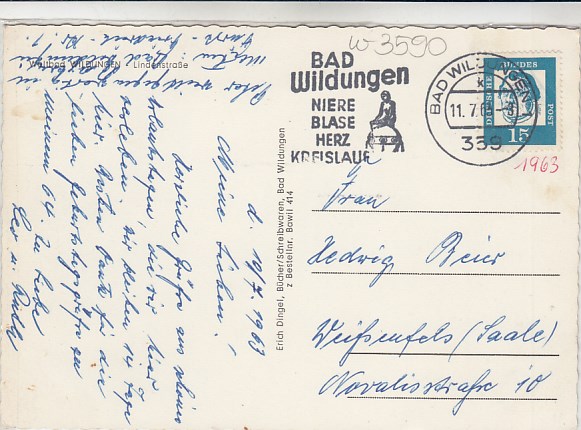 w 3590
Weltbad WILDUNGEN - Lindenstraße
BAD
Wildungen
NIERE
BLASE
HERZ
KREISLAUF
BAD WILDUNGEN
11.7.63
359
DEUTSCHE
BUNDES
POST
15
1963
Erich Dingel, Bücher/Schreibwaren, Bad Wildungen
z Bestellnr. Bawil 414
d. 10/7. 1963
Meine Lieben!
Herzliche Grüße aus
Urlaubstagen, die wir hier
verleben. Wir bleiben 14 Tage
hier. Besten Dank für die
lieben Geburtstagsgrüße zu
meinem 64. In Liebe
Leo u.
Frau
Hedwig Beier
Weißenfels (Saale)
Novalisstraße 10